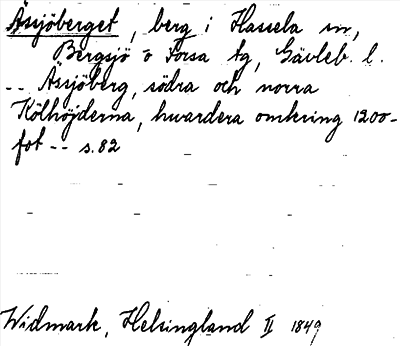 Åssjöberget, berg i Hassela sn,
Bergsjö o Forsa tg, Gävleb. l.
-- Åssjöberg, södra och norra
Kölhöjderna, hvardera omkring 1200-
fot -- s. 82
Widmark, Helsingland II 1849